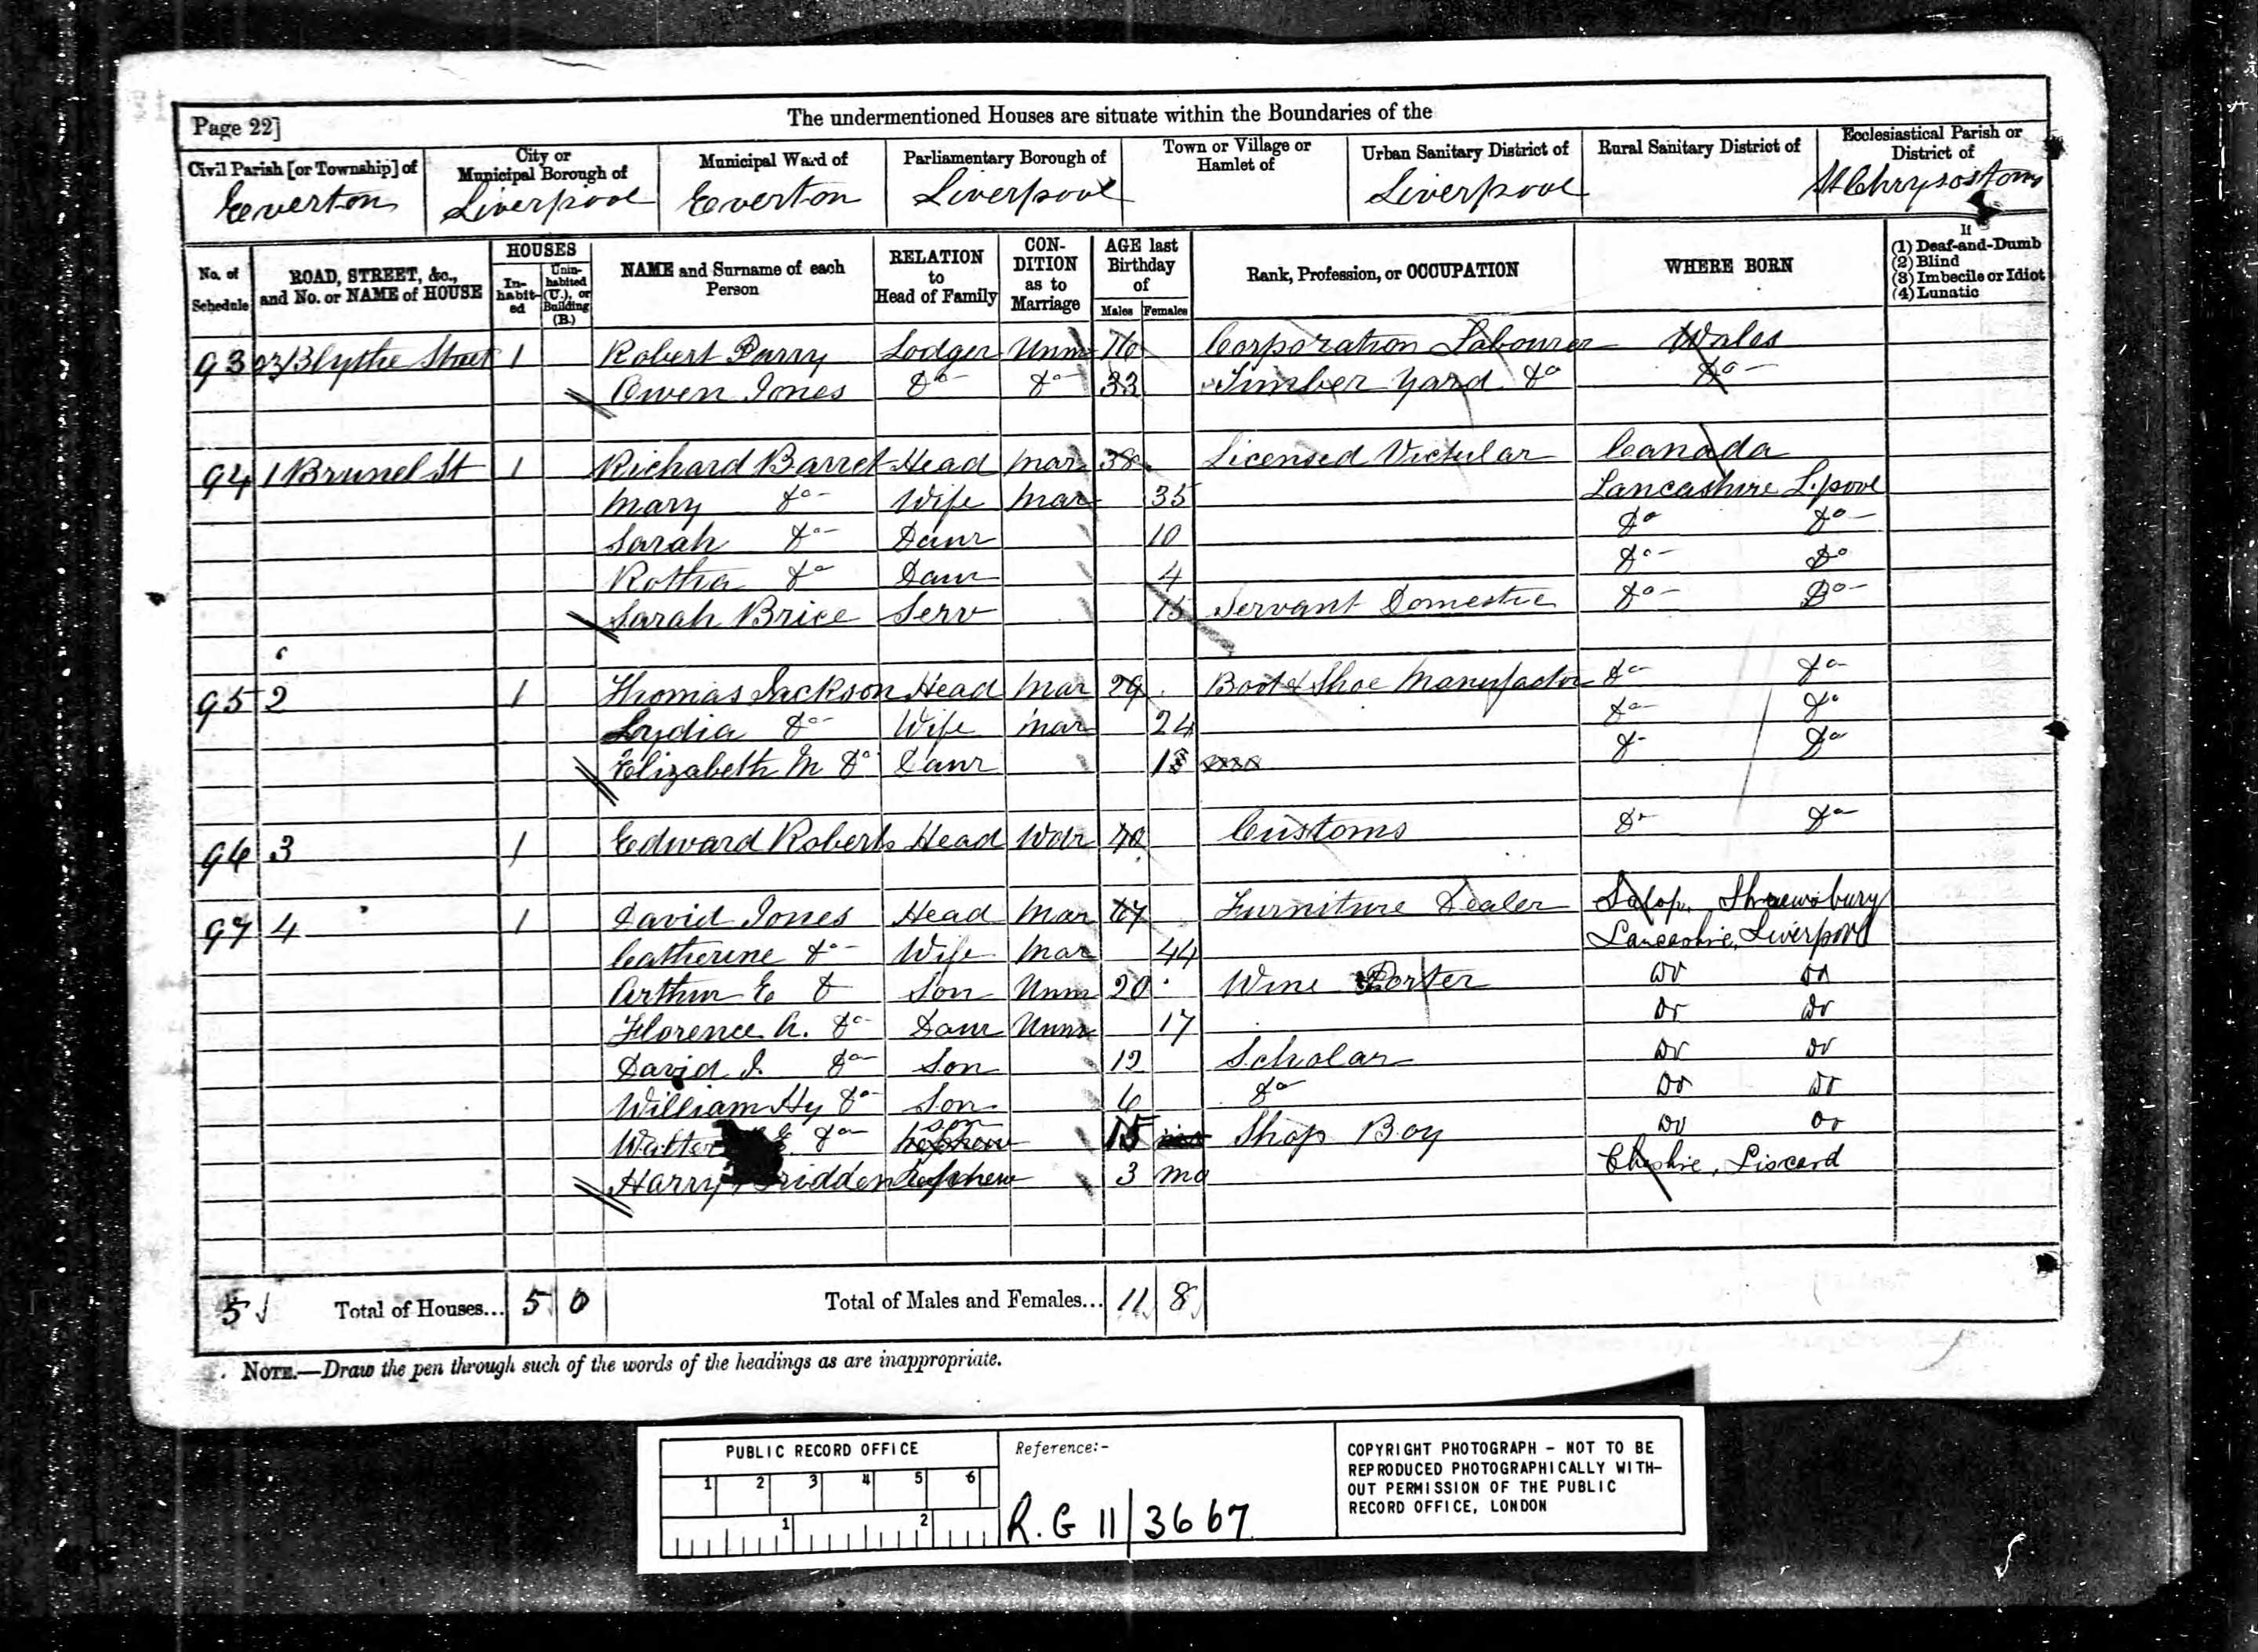 The undermentioned Houses are situate within the Boundaries of the
Page 22]
Civil Parish [or Township] of
Everton
City or Municipal Borough of
Liverpool
Municipal Ward of
Everton
Parliamentary Borough of
Liverpool
Town or Village or Hamlet of
Urban Sanitary District of
Liverpool
Rural Sanitary District of
Ecclesiastical Parish or District of
St Chrysostom
No. of Schedule
ROAD, STREET, &c., and No. or NAME of HOUSE
HOUSES
In-habit-ed
Unin-habited (U.), or Building (B.)
NAME and Surname of each Person
RELATION to Head of Family
CON-DITION as to Marriage
AGE last Birthday of
Males Females
Rank, Profession, or OCCUPATION
WHERE BORN
If
(1) Deaf-and-Dumb
(2) Blind
(3) Imbecile or Idiot
(4) Lunatic
93 Blythe Street 1 Robert Parry Lodger Unm Corporation Labourer Wales
Owen Jones Do Do 33 Timber Yard Do Do
94 1 Brunel St 1 Richard Barret Head Mar 38 Licensed Victular Canada
Mary Do Wife Mar 35 Lancashire L.pool
Sarah Do Daur 10 Do Do
Do Daur 4 Do Do
Sarah Brice Serv 15 Servant Domestic Do Do
95 2 1 Thomas Jackson Head Mar 29 Boot & Shoe Manufactor Do Do
Lydia Do Wife Mar 24 Do Do
Elizabeth M Do Daur Do Do
96 3 1 Edward Roberts Head Wdr Customs Do Do
97 4 1 David Jones Head Mar Furniture Dealer Salop, Shrewsbury
Catherine Do Wife Mar 44 Lancashire, Liverpool
Arthur E Do Son Unm 20 Wine Porter Do Do
Florence A. Do Daur Unm 17 Do Do
David J. Do Son 12 Scholar Do Do
William Hy Do Son 6 Do Do Do
Walter E. Do Son nephew 15 Shop Boy Do Do
Harry nephew 3 mo Cheshire, Liscard
5 Total of Houses... 5 0 Total of Males and Females... 11 8
NOTE.—Draw the pen through such of the words of the headings as are inappropriate.
PUBLIC RECORD OFFICE
1 2 3 4 5 6
1 2
Reference:-
R.G 11/3667
COPYRIGHT PHOTOGRAPH - NOT TO BE
REPRODUCED PHOTOGRAPHICALLY WITH-
OUT PERMISSION OF THE PUBLIC
RECORD OFFICE, LONDON